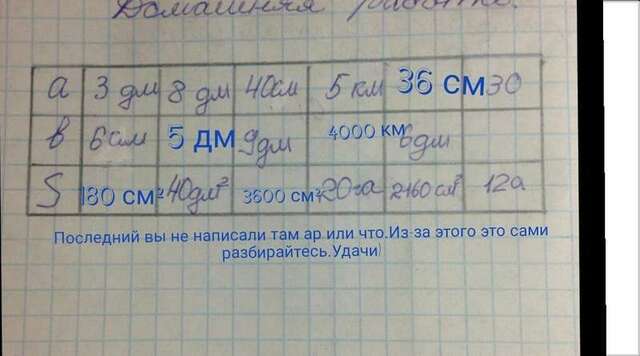 Домашняя работа.
a 3 дм 8 дм 40см 5 км 36 см 30
в 6см 5 дм 9дм 4000 км 6дм
S 180 см² 40дм² 3600 см² 20га 2160см² 12а
Последний вы не написали там ар или что.Из-за этого это сами
разбирайтесь.Удачи)